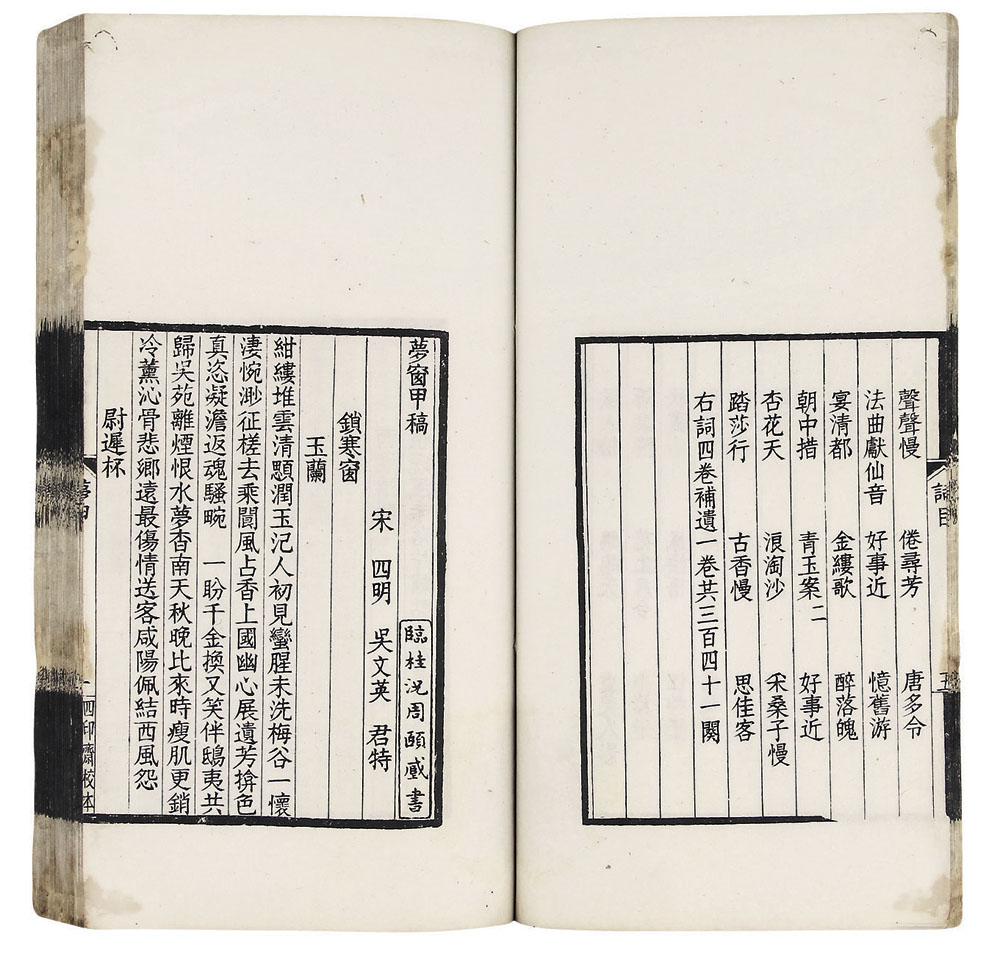 詞目 五
聲聲慢 倦尋芳 唐多令
法曲獻仙音 好事近 憶舊游
宴清都 金縷歌 醉落魄
朝中措 青玉案二 好事近
杏花天 浪淘沙 采桑子慢
踏莎行 古香慢 思佳客
右詞四卷補遺一卷共三百四十一闋
夢窗甲稿
臨桂況周頤藏書
宋 四明 吳文英 君特
鎖寒窗
玉蘭
紺縷堆雲清顋潤玉氾人初見蠻腥未洗梅谷一懷
淒惋渺征槎去乘閬風占香上國幽心展遺芳揜色
真恣凝澹返魂騷畹 一盼千金換又笑伴鴟夷共
歸吳苑離煙恨水夢杳南天秋晚比來時瘦肌更銷
冷薰沁骨悲鄉遠最傷情送客咸陽佩結西風怨
尉遲杯
夢甲
四印齋校本